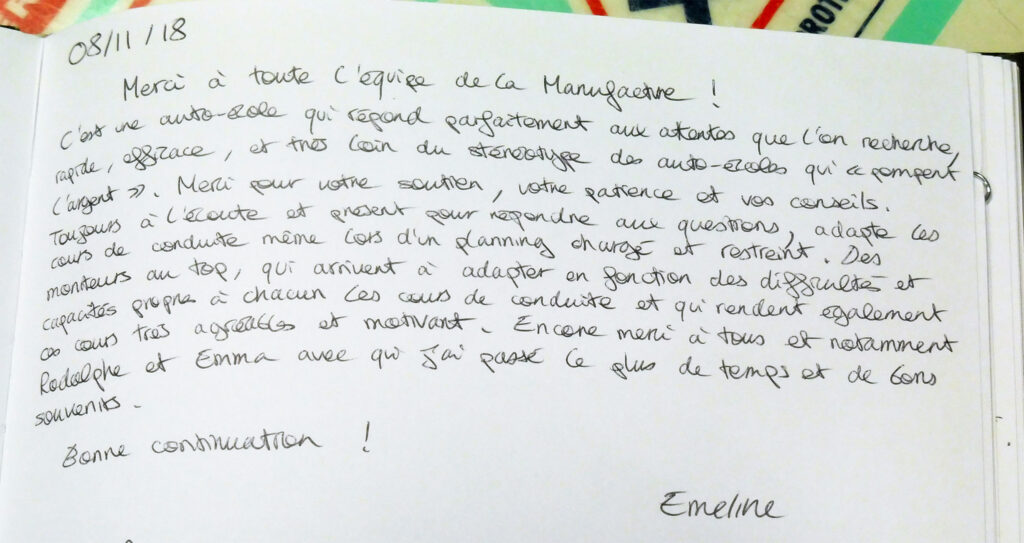 08/11/18
Merci à toute l'équipe de la Manufacture !
C'est une auto-école qui répond parfaitement aux attentes que l'on recherche,
rapide, efficace, et très loin du stéréotype des auto-écoles qui « pompent
l'argent ». Merci pour votre soutien, votre patience et vos conseils.
Toujours à l'écoute et présent pour répondre aux questions, adapte les
cours de conduite même lors d'un planning chargé et restreint. Des
moniteurs au top, qui arrivent à adapter en fonction des difficultés et
capacités propres à chacun les cours de conduite et qui rendent également
ces cours très agréables et motivant. Encore merci à tous et notamment
Rodolphe et Emma avec qui j'ai passé le plus de temps et de bons
souvenirs.
Bonne continuation !
Emeline